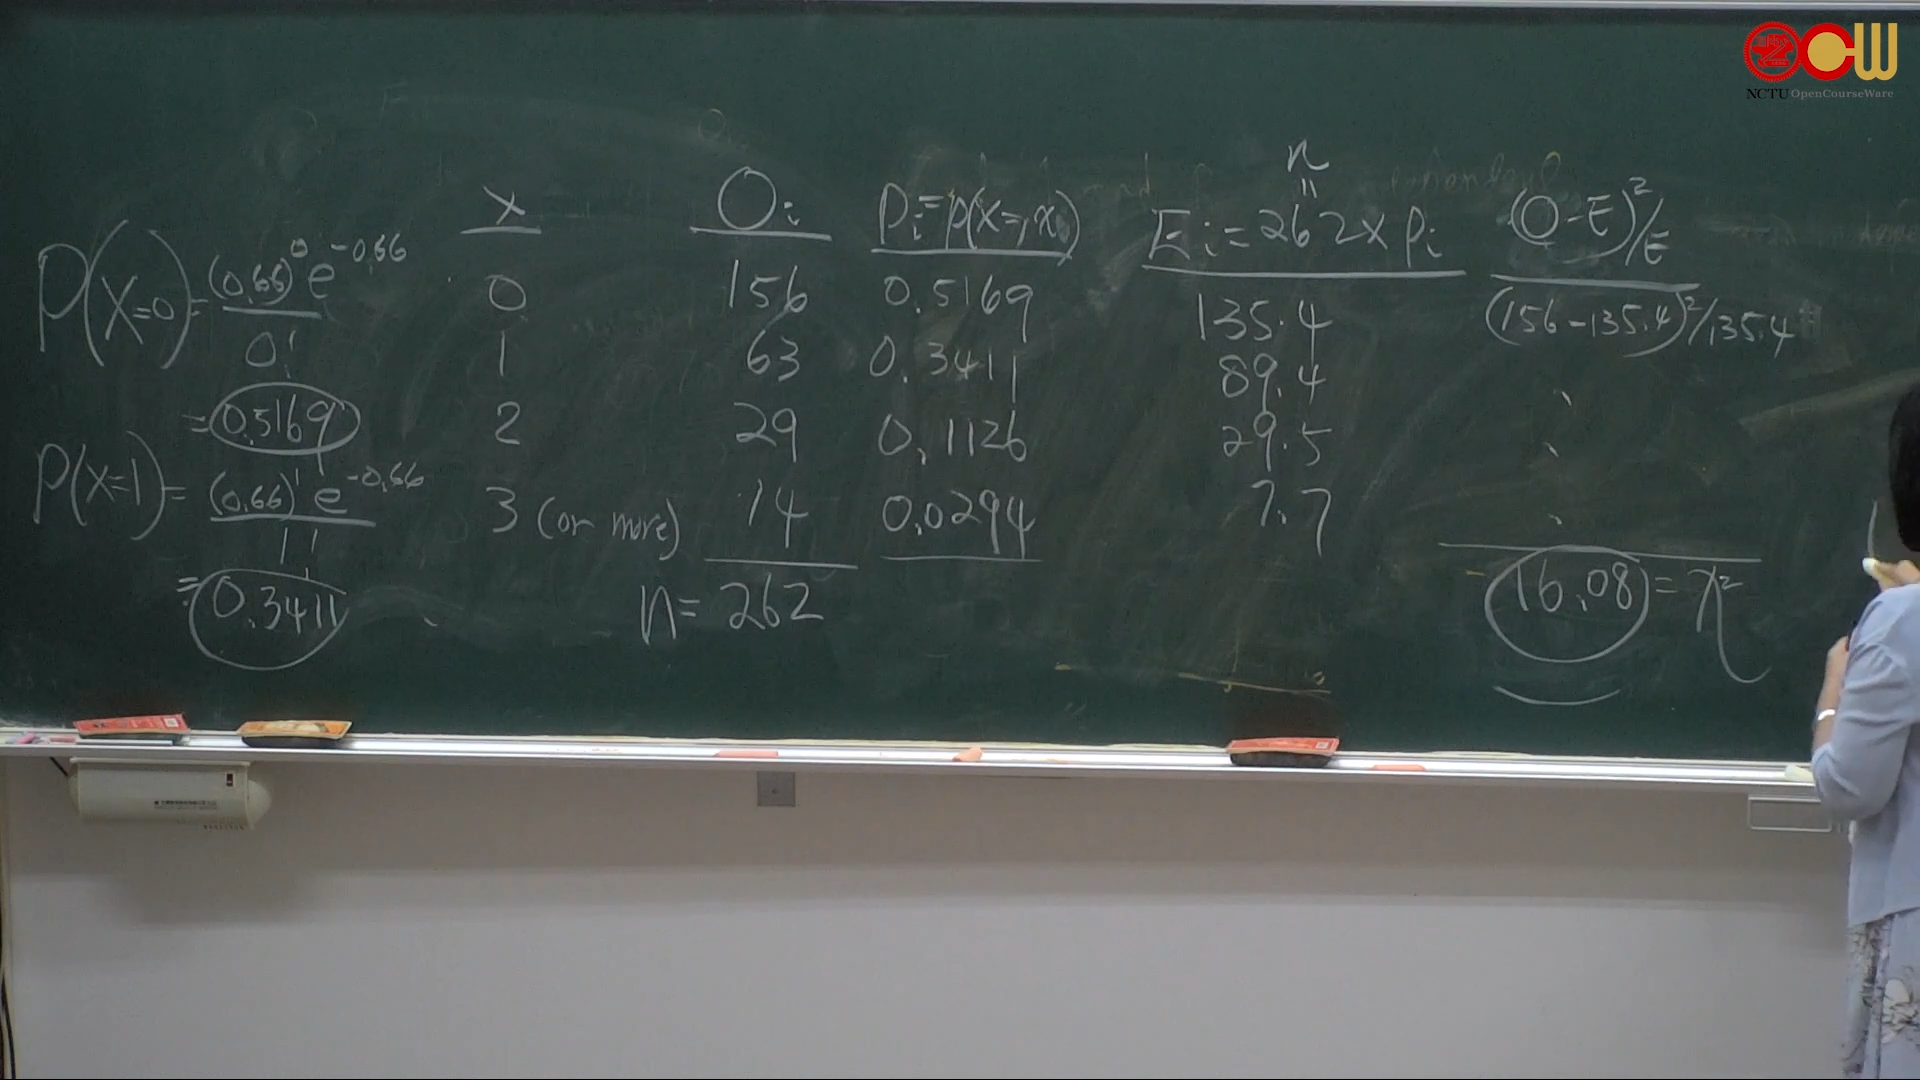 NCTU OpenCourseWare
P(X=0) = (0.66)^0 e^-0.66 / 0!
= 0.5169
P(X=1) = (0.66)^1 e^-0.66 / 1!
= 0.3411
x Oi Pi = P(X=x) Ei = 262 x Pi (O-E)²/E
n
=
0 156 0.5169 135.4 (156-135.4)²/135.4
1 63 0.3411 89.4
2 29 0.1126 29.5
3 (or more) 14 0.0294 7.7
n = 262 16.08 = χ²